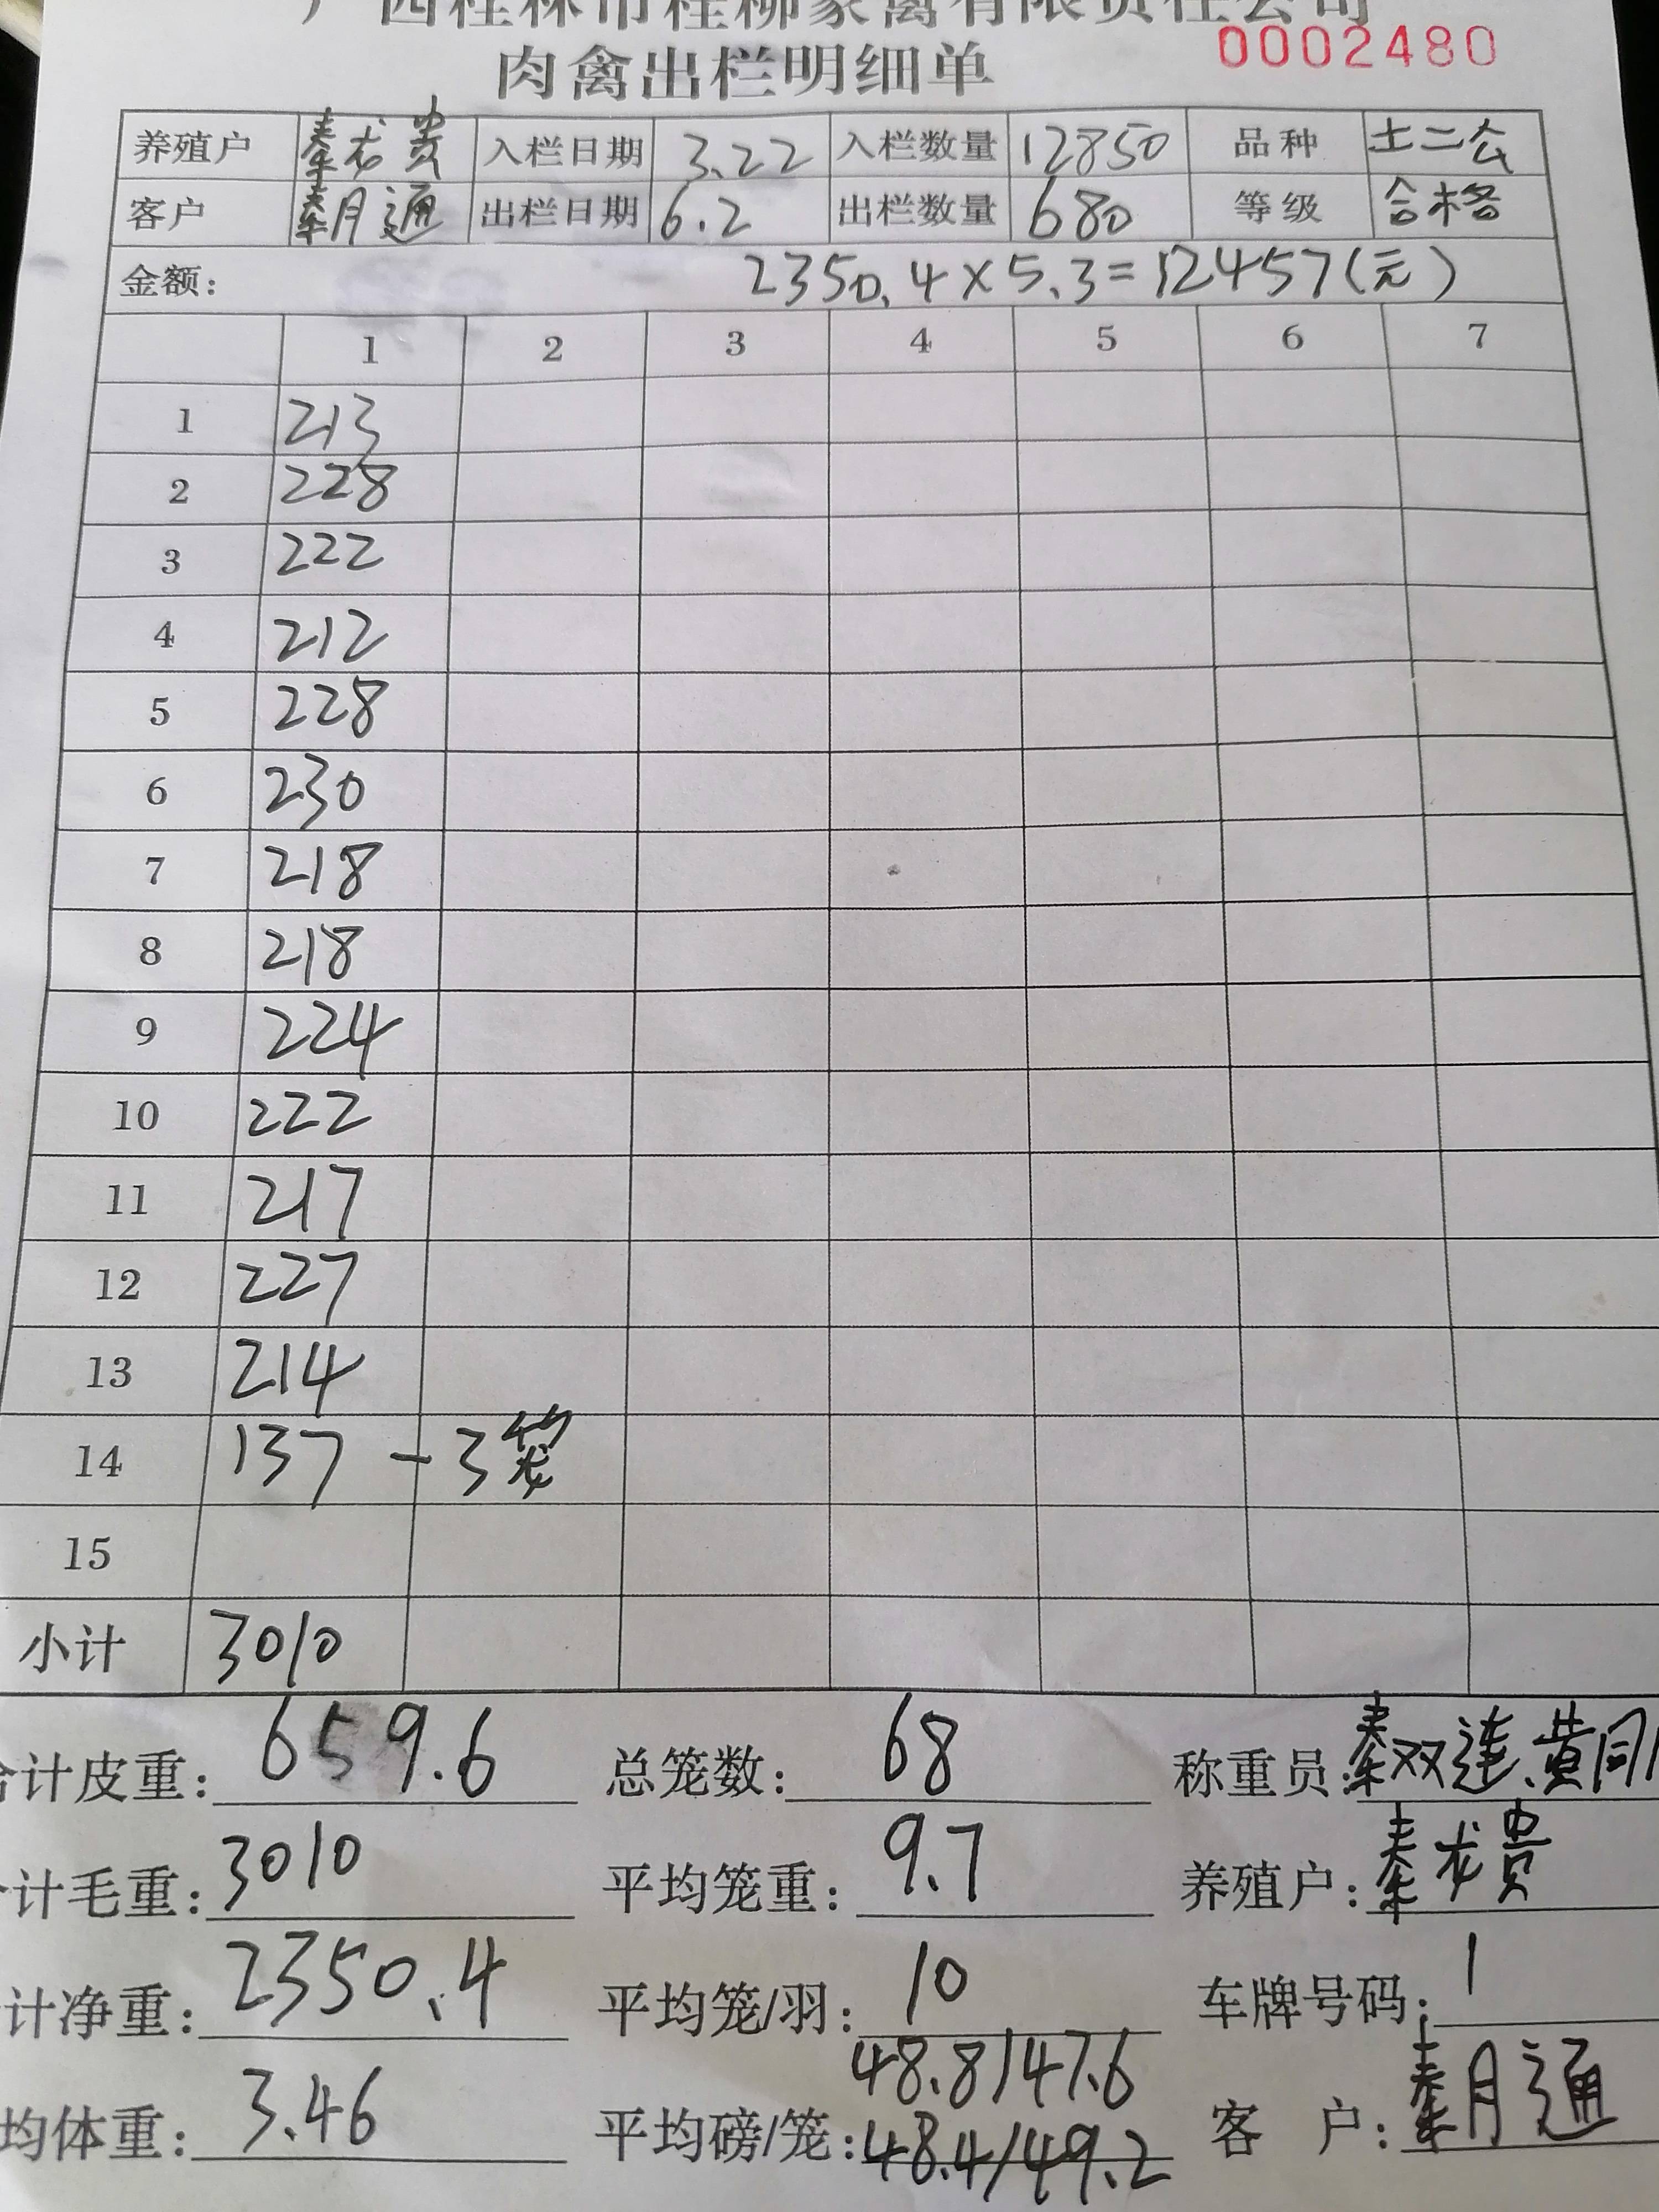 广西桂林市桂柳家禽有限责任公司
肉禽出栏明细单 0002480
养殖户 秦龙贵 入栏日期 3.22 入栏数量 12850 品种 土二公
客户 秦月通 出栏日期 6.2 出栏数量 680 等级 合格
金额: 2350.4×5.3=12457(元)
1 2 3 4 5 6 7
1 213
2 228
3 222
4 212
5 228
6 230
7 218
8 218
9 224
10 222
11 217
12 227
13 214
14 137 - 3笼
15
小计 3010
合计皮重: 659.6 总笼数: 68 称重员: 秦双连、黄同
计毛重: 3010 平均笼重: 9.7 养殖户: 秦龙贵
计净重: 2350.4 平均笼/羽: 10 车牌号码: 1
48.8/47.6
均体重: 3.46 平均磅/笼: 48.4/49.2 客户: 秦月通